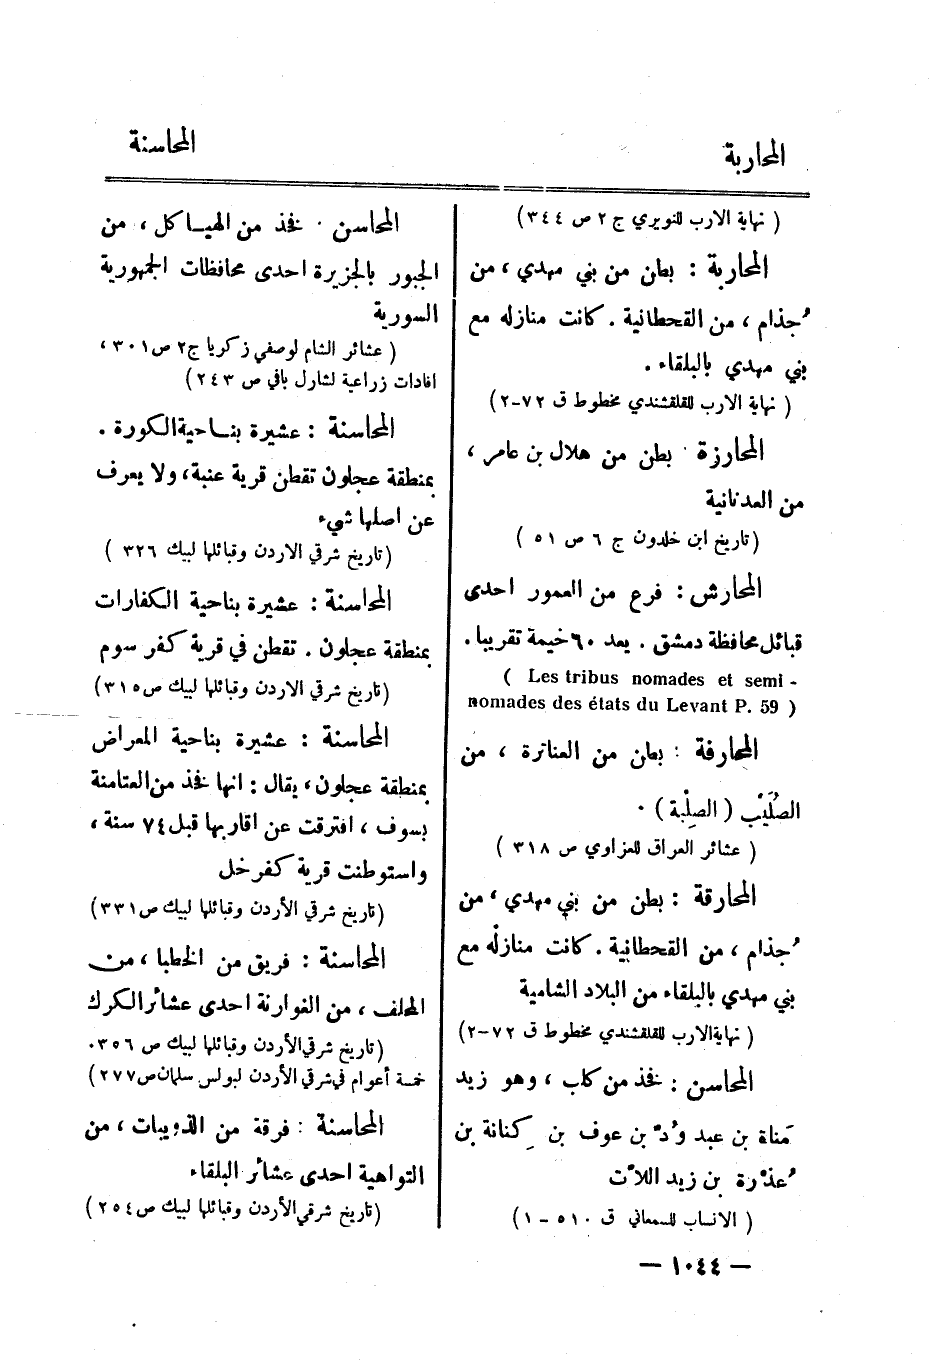 المحاربة
المحاسنة
( نهاية الارب للنويري ج ٢ ص ٣٤٤ )
المحاربة : بطن من بني مهدي ، من
جُذام ، من القحطانية . كانت منازله مع
بني مهدي بالبلقاء .
( نهاية الارب للقلقشندي مخطوط ق ٧٢-٢ )
المحارزة . بطن من هلال بن عامر ،
من العدنانية
( تاريخ ابن خلدون ج ٦ ص ٥١ )
المحارش : فرع من العمور احدى
قبائل محافظة دمشق . يعد ٦٠ خيمة تقريبا .
( Les tribus nomades et semi -
nomades des états du Levant P. 59 )
المحارفة : بطن من العناترة ، من
الصُلَيْب ( الصلِبة ) .
( عشائر العراق للعزاوي ص ٣١٨ )
المحارقة : بطن من بني مهدي ، من
جُذام ، من القحطانية . كانت منازله مع
بني مهدي بالبلقاء من البلاد الشامية
( نهاية الارب للقلقشندي مخطوط ق ٧٢-٢ )
المحاسن : فخذ من كلب ، وهو زيد
مَناة بن عبد وُدّ بن عوف بن كِنانة بن
عُذْرة بن زيد اللات
( الانساب للسمعاني ق ٥١٠ - ١ )
المحاسن . فخذ من الهياكل ، من
الجبور بالجزيرة احدى محافظات الجمهورية
السورية
( عشائر الشام لوصفي زكريا ج٢ ص ٣٠١ ،
افادات زراعية لشارل بافي ص ٢٤٣ )
المحاسنة : عشيرة بناحية الكورة .
بمنطقة عجلون تقطن قرية عنبة ، ولا يعرف
عن اصلها شيء
( تاريخ شرقي الاردن وقبائلها لبيك ٣٢٦ )
المحاسنة : عشيرة بناحية الكفارات
بمنطقة عجلون . تقطن في قرية كفر سوم
( تاريخ شرقي الاردن وقبائلها لبيك ص ٣١٥ )
المحاسنة : عشيرة بناحية المعراض
بمنطقة عجلون ، يقال : انها فخذ من العتامنة
بسوف ، افترقت عن اقاربها قبل ٧٤ سنة ،
واستوطنت قرية كفر خل
( تاريخ شرقي الأردن وقبائلها لبيك ص ٣٣١ )
المحاسنة : فريق من الخطبا ، من
المحلف ، من الغوارنة احدى عشائر الكرك
( تاريخ شرقي الأردن وقبائلها لبيك ص ٣٥٦ .
خمسة أعوام في شرقي الأردن لبولس سلمان ص ٢٧٧ )
المحاسنة : فرقة من الذويبات ، من
التواهية احدى عشائر البلقاء
( تاريخ شرقي الأردن وقبائلها لبيك ص ٢٥٤ )
— ١٠٤٤ —